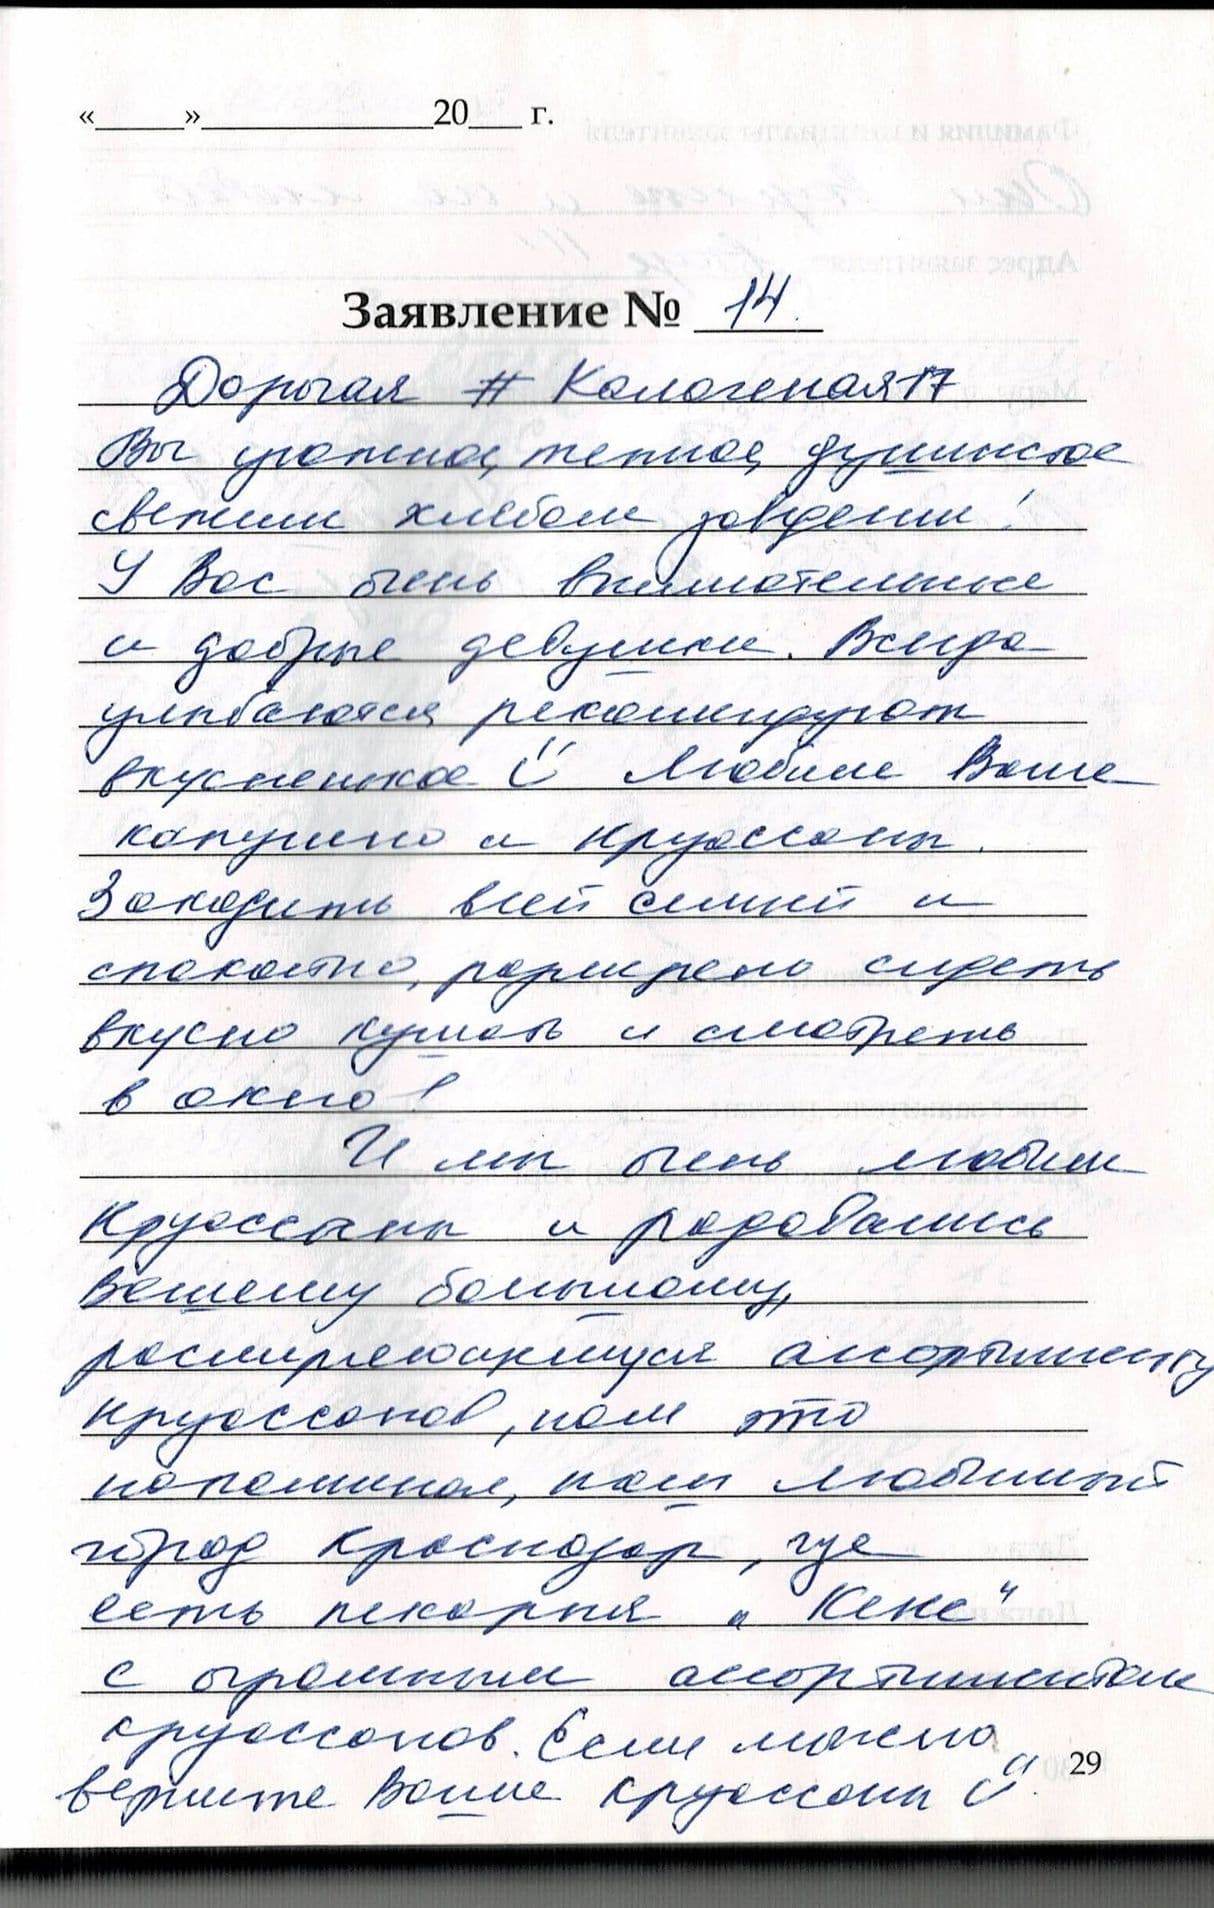 «_____»_____________20___ г.
Заявление № 14.
Дорогая # Калачная17
Вы уютное, теплое, душистое
свежим хлебом заведении!
У Вас очень внимательные
и добрые девушки. Всегда
улыбаются, рекомендуют
вкусненькое Ü Любим Ваше
капучино и круассаны.
Заходить всей семьей и
спокойно, размерено сидеть
вкусно кушать и смотреть
в окно!
И мы очень любим
Круассаны и радовались
Вашему большому,
расширяющемуся ассортименту
круассанов, нам это
напоминал, наш любимый
город Краснодар, где
есть пекарня „Кекс“
с огромным ассортиментом
круассанов. Если можно
верните Ваше круассаны Ü.
29